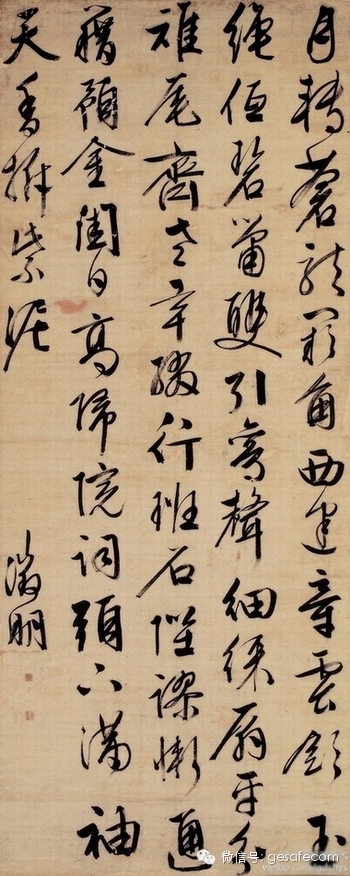 月转苍龙阙角西建章云敛玉
绳低碧箫双引鸾声细彩扇平分
雉尾齐老幸缀行班石陛谬惭通
籍预金闺日高归院词头下满袖
天香拆紫泥
徵明
微信号: gesafecom